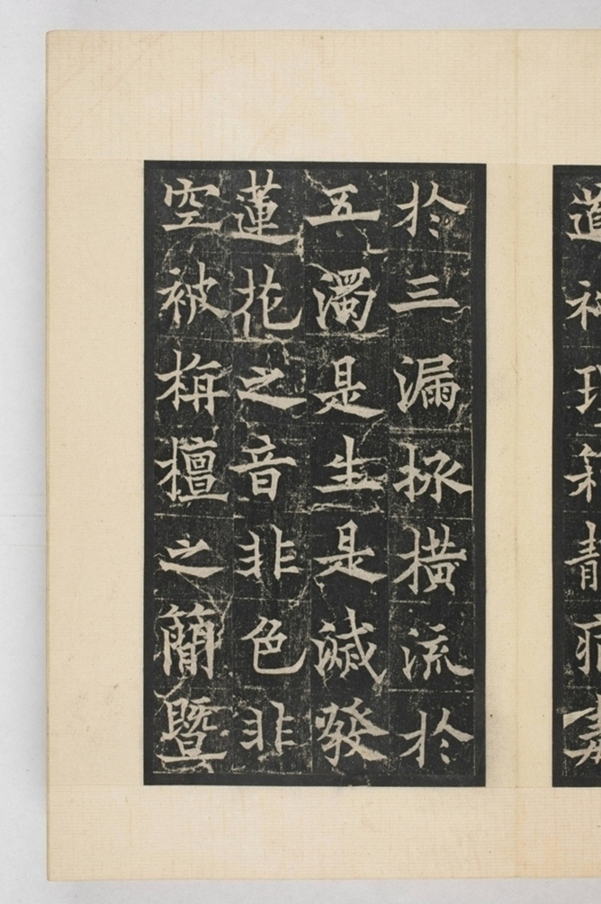 道
於三漏拯橫流於
五濁是生是滅發
蓮花之音非色非
空被栴檀之簡暨